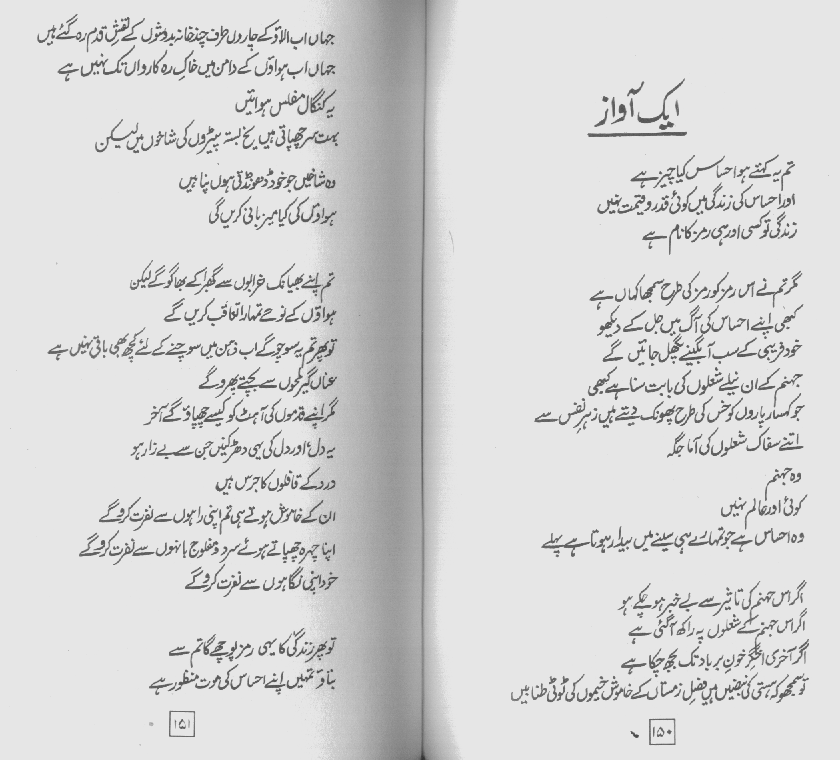 ایک آواز
تم یہ کہتے ہو احساس کیا چیز ہے
اور احساس کی زندگی میں کوئی قدر و قیمت نہیں
زندگی تو کسی اور ہی رمز کا نام ہے
مگر تم نے اس رمز کو رمز کی طرح سمجھا کہاں ہے
کبھی اپنے احساس کی آگ میں جل کے دیکھو
خود فریبی کے سب آبگینے پگھل جائیں گے
جہنم کے ان نیلے شعلوں کی بابت سنا ہے کبھی
جو کہسار پاروں کو خس کی طرح پھونک دیتے ہیں زہرِ نفس سے
اتنے سفاک شعلوں کی آماجگہ
وہ جہنم
کوئی اور عالم نہیں
وہ احساس ہے جو تمہارے ہی سینے میں بیدار ہوتا ہے پہلے
اگر اس جہنم کی تاثیر سے بے خبر ہو چکے ہو
اگر اس جہنم کے شعلوں پہ راکھ آ گئی ہے
اگر آخری اخگرِ خونِ برباد تک بجھ چکا ہے
تو سمجھو کہ ہستی کی نبضیں ہیں فصلِ زمستاں کے خاموش خیموں کی ٹوٹی طنابیں
۱۵۰
جہاں اب الاؤ کے چاروں طرف چند خانہ بدوشوں کے نقشِ قدم رہ گئے ہیں
جہاں اب ہواؤں کے دامن میں خاکِ رہ کارواں تک نہیں ہے
یہ کنگال مفلس ہوائیں
بہت سر چھپاتی ہیں یخ بستہ پیڑوں کی شاخوں میں لیکن
وہ شاخیں جو خود ڈھونڈتی ہوں پناہیں
ہواؤں کی کیا میزبانی کریں گی
تم اپنے بھیانک خرابوں سے گھبرا کے بھاگو گے لیکن
ہواؤں کے نوحے تمہارا تعاقب کریں گے
تو پھر تم یہ سوچو گے اب ذہن میں سوچنے کے لئے کچھ بھی باقی نہیں ہے
عناں گیر لمحوں سے بچتے پھرو گے
مگر اپنے قدموں کی آہٹ کو کیسے چھپاؤ گے آخر
یہ دل، اور دل کی یہی دھڑکنیں جن سے بے زار ہو
درد کے قافلوں کا جرس ہیں
ان کے خاموش ہوتے ہی تم اپنی راہوں سے نفرت کرو گے
اپنا چہرہ چھپاتے ہوئے سرد و مفلوج بانہوں سے نفرت کرو گے
خود اپنی نگاہوں سے نفرت کرو گے
تو پھر زندگی کا یہی رمز پوچھے گا تم سے
بتاؤ تمہیں اپنے احساس کی موت منظور ہے
۱۵۱